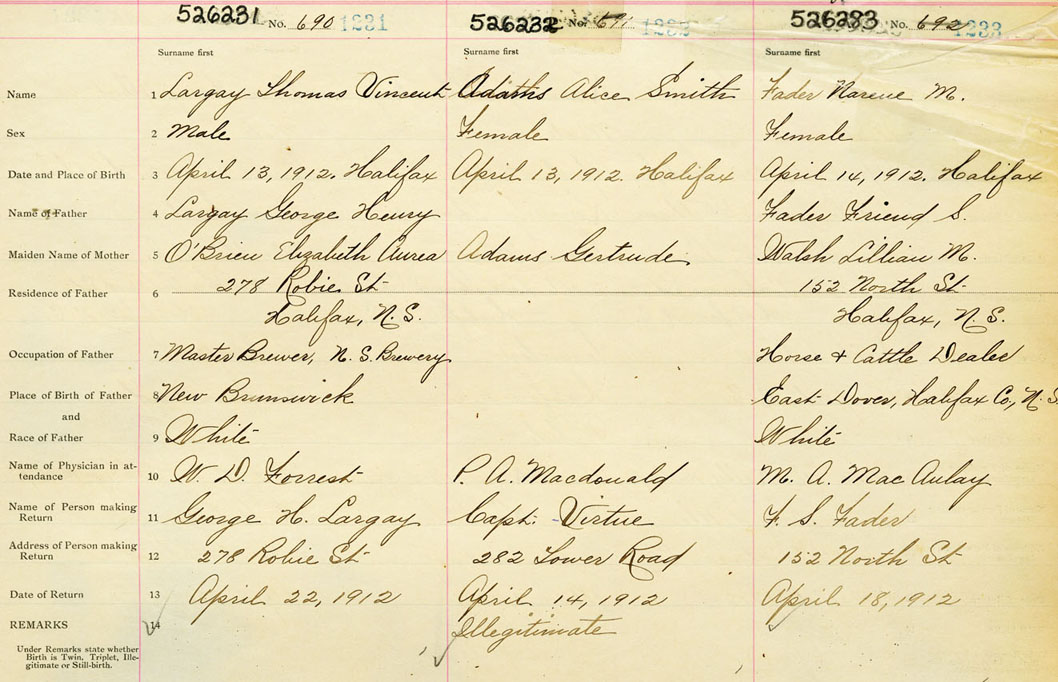 526231 No. 690 1231 526232 No. 691 1232 526233 No. 692 1233
Surname first Surname first Surname first
Name 1 Largay Thomas Vincent Adams Alice Smith Fader M.
Sex 2 Male Female Female
Date and Place of Birth 3 April 13, 1912. Halifax April 13, 1912. Halifax April 14, 1912. Halifax
Name of Father 4 Largay George Henry Fader Friend S.
Maiden Name of Mother 5 O'Brien Elizabeth Aurea Adams Gertrude Walsh Lillian M.
Residence of Father 6 278 Robie St 152 North St
Halifax, N.S. Halifax, N.S.
Occupation of Father 7 Master Brewer, N.S. Brewery Horse & Cattle Dealer
Place of Birth of Father 8 New Brunswick East Dover, Halifax Co., N.S.
and
Race of Father 9 White White
Name of Physician in at-
tendance 10 W. D. Forrest P. A. Macdonald M. A. MacAulay
Name of Person making
Return 11 George H. Largay Capt. Virtue F. S. Fader
Address of Person making
Return 12 278 Robie St 282 Tower Road 152 North St
Date of Return 13 April 22, 1912 April 14, 1912 April 18, 1912
REMARKS 14 Illegitimate
Under Remarks state whether
Birth is Twin, Triplet, Ille-
gitimate or Still-birth.